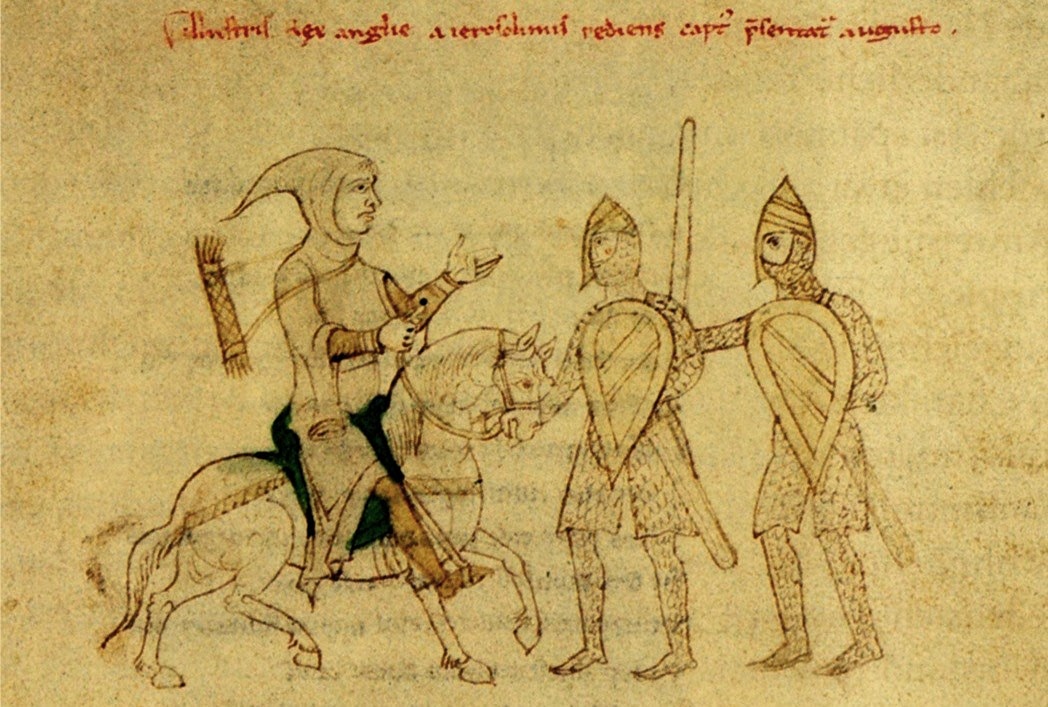 Illustris rex anglie a ierosolimis rediens capt' p̄sentat' augusto .